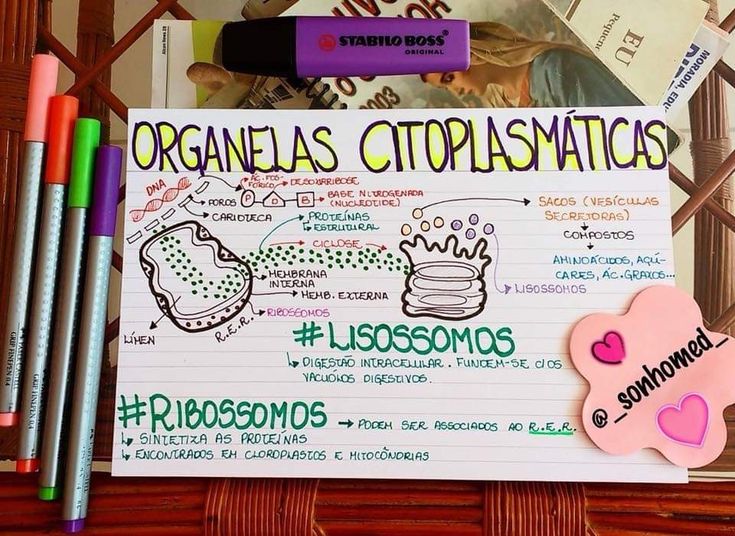 STABILO BOSS
ORIGINAL
EU
2003
MORADIA, EDU
ORGANELAS CITOPLASMÁTICAS
DNA
ÁC. FOS-
FÓRICO
DESOXIRRIBOSE
POROS
P
D
B
BASE NITROGENADA
(NUCLEOTÍDE)
CARIOTECA
PROTEÍNAS
ESTRUTURAL
CICLOSE
SACOS (VESÍCULAS
SECRETORAS)
COMPOSTOS
AMINOÁCIDOS, AÇÚ-
CARES, ÁC. GRAXOS...
LISOSSOMOS
MEMBRANA
INTERNA
MEMB. EXTERNA
RIBOSSOMOS
R.E.R.
LÍMEN
#LISOSSOMOS
DIGESTÃO INTRACELULAR. FUNDEM-SE C/OS
VACÚOLOS DIGESTIVOS.
#RIBOSSOMOS → PODEM SER ASSOCIADOS AO R.E.R.
SINTETIZA AS PROTEÍNAS
ENCONTRADOS EM CLOROPLASTOS E MITOCÔNDRIAS
@_sonhomed_
GRIP FINEPEN 0.4